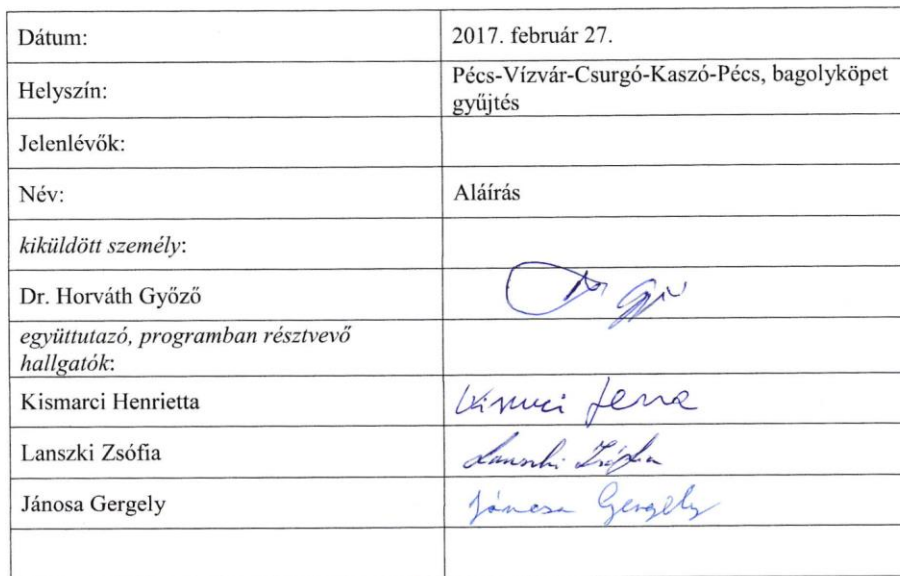 Dátum: 2017. február 27.
Helyszín: Pécs-Vízvár-Csurgó-Kaszó-Pécs, bagolyköpet
gyűjtés
Jelenlévők:
Név: Aláírás
kiküldött személy:
Dr. Horváth Győző
együttutazó, programban résztvevő
hallgatók:
Kismarci Henrietta
Lanszki Zsófia Lanszki Zsófia
Jánosa Gergely Jánosa Gergely